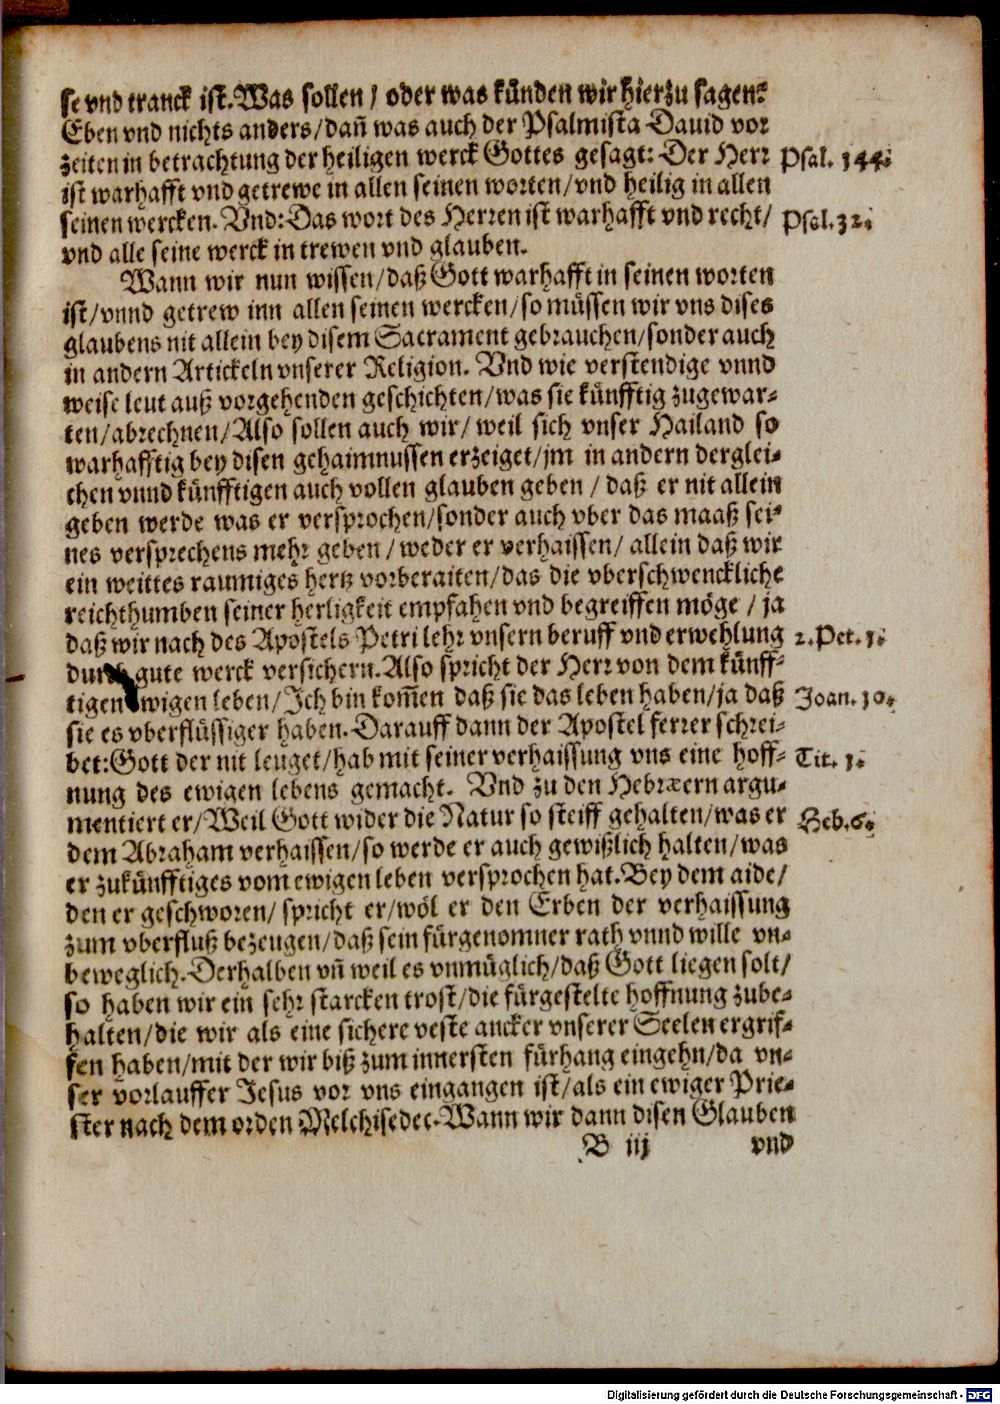 se vnd tranck ist. Was sollen / oder was künden wir hierzu sagen?
Eben vnd nichts anders / dañ was auch der Psalmista Dauid vor
zeiten in betrachtung der heiligen werck Gottes gesagt: Der Herr Psal. 144.
ist warhafft vnd getrewe in allen seinen worten / vnd heilig in allen
seinen wercken. Vnd: Das wort des Herren ist warhafft vnd recht / Psal. 32.
vnd alle seine werck in trewen vnd glauben.
Wann wir nun wissen / daß Gott warhafft in seinen worten
ist / vnnd getrew inn allen seinen wercken / so müssen wir vns dises
glaubens nit allein bey disem Sacrament gebrauchen / sonder auch
in andern Artickeln vnserer Religion. Vnd wie verstendige vnnd
weise leut auß vorgehenden geschichten / was sie künfftig zugewar-
ten / abrechnen / Also sollen auch wir / weil sich vnser Hailand so
warhafftig bey disen gehaimnussen erzeiget / jm in andern derglei-
chen vnnd künfftigen auch vollen glauben geben / daß er nit allein
geben werde was er versprochen / sonder auch vber das maaß sei-
nes versprechens mehr geben / weder er verhaissen / allein daß wir
ein weittes raumiges hertz vorberaiten / das die vberschwenckliche
reichthumben seiner herligkeit empfahen vnd begreiffen möge / ja
daß wir nach des Apostels Petri lehr vnsern beruff vnd erwehlung 2. Pet. 1.
durch gute werck versichern. Also spricht der Herr von dem künff-
tigen ewigen leben / Ich bin kom̃en daß sie das leben haben / ja daß Joan. 10.
sie es vberflüssiger haben. Darauff dann der Apostel ferrer schrei-
bet: Gott der nit leuget / hab mit seiner verhaissung vns eine hoff- Tit. 1.
nung des ewigen lebens gemacht. Vnd zu den Hebræern argu-
mentiert er / Weil Gott wider die Natur so steiff gehalten / was er Heb. 6.
dem Abraham verhaissen / so werde er auch gewißlich halten / was
er zukünfftiges vom ewigen leben versprochen hat. Bey dem aide /
den er geschworen / spricht er / wöl er den Erben der verhaissung
zum vberfluß bezeugen / daß sein fürgenomner rath vnnd wille vn-
beweglich. Derhalben vñ weil es vnmüglich / daß Gott liegen solt /
so haben wir ein sehr starcken trost / die fürgestelte hoffnung zube-
halten / die wir als eine sichere veste ancker vnserer Seelen ergrif-
fen haben / mit der wir biß zum innersten fürhang eingehn / da vn-
ser vorlauffer Jesus vor vns eingangen ist / als ein ewiger Prie-
ster nach dem orden Melchisedec. Wann wir dann disen Glauben
B iij vnd
Digitalisierung gefördert durch die Deutsche Forschungsgemeinschaft - DFG